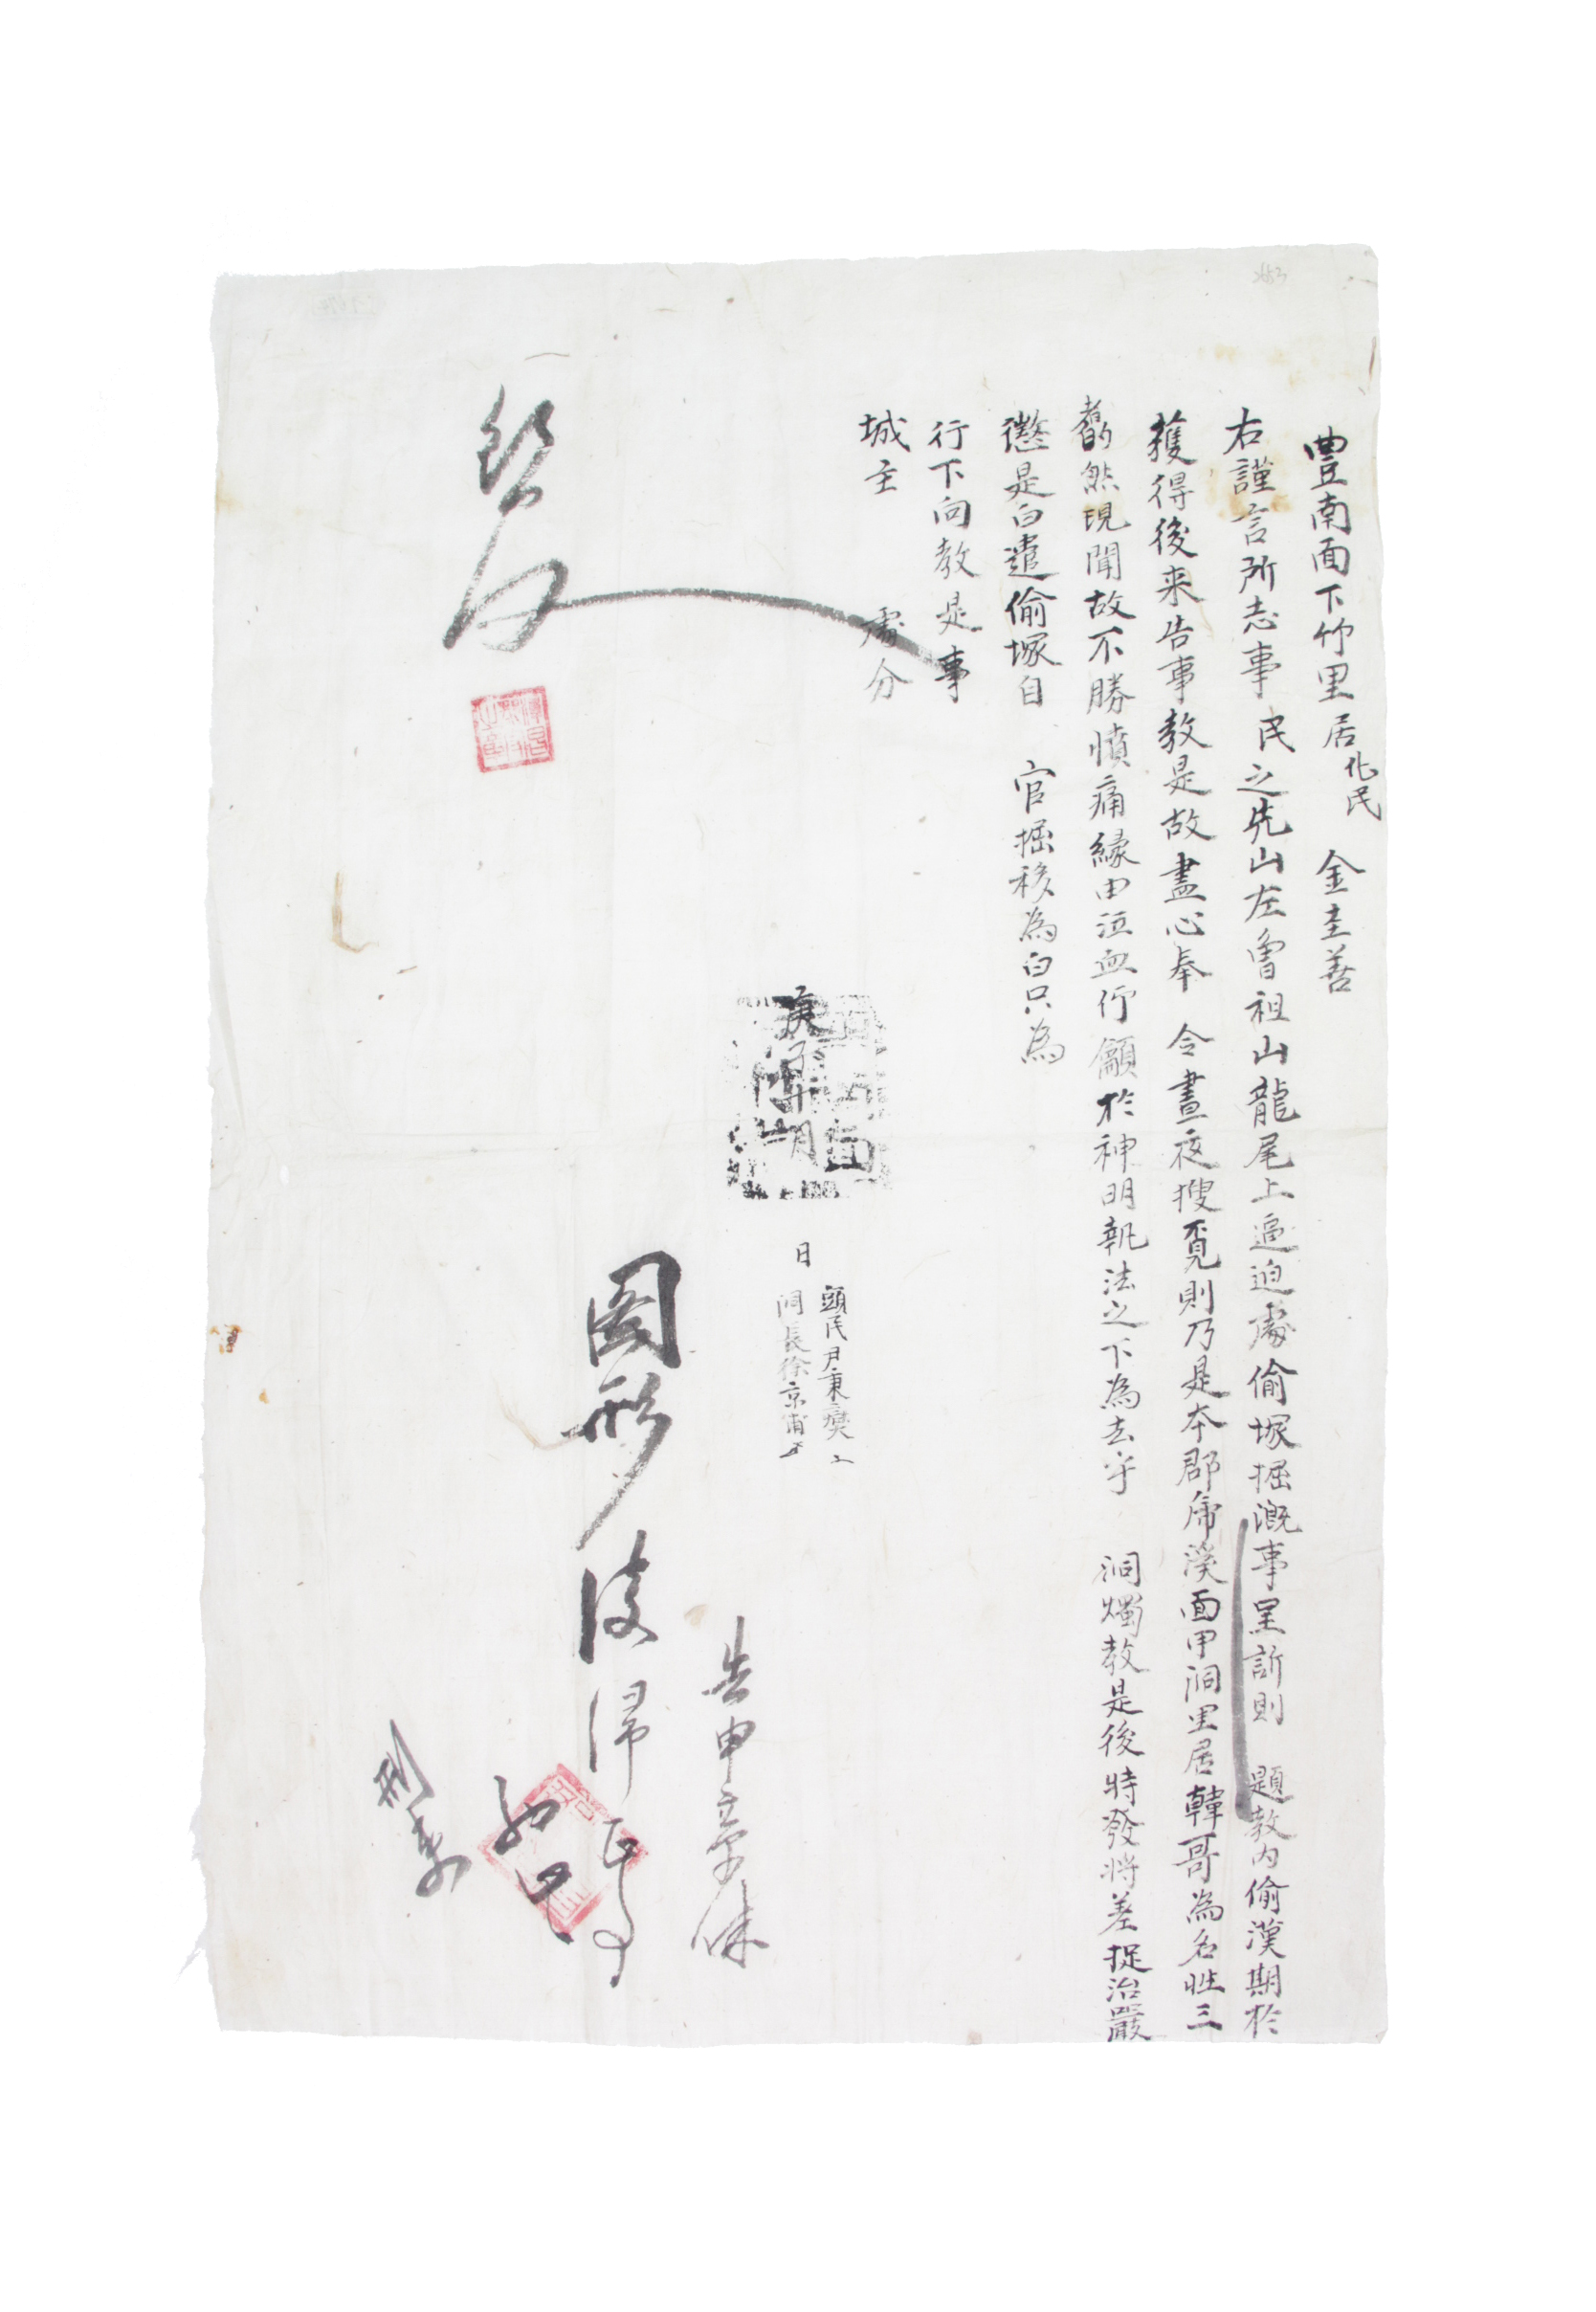 豊南面下竹里居化民 金圭善
右謹言所志事 民之先山左曾祖山龍尾上逼迫處偷塚掘漑事呈訴則 題敎內偷漢期於
獲得後来告事敎是故盡心奉 令晝夜搜覓則乃是本郡席溪面甲洞里居韓哥為名姓三
斶然現聞故不勝憤痛緣由泣血仰籲於神明執法之下為去乎 洞燭敎是後特發將差捉治嚴
懲是白遣偷塚自 官掘移為白只為
行下向敎是事
城主 處分
庚子 月 日
頭民尹秉奭
洞長徐京甫
告申章
圖形後歸正事
刑吏